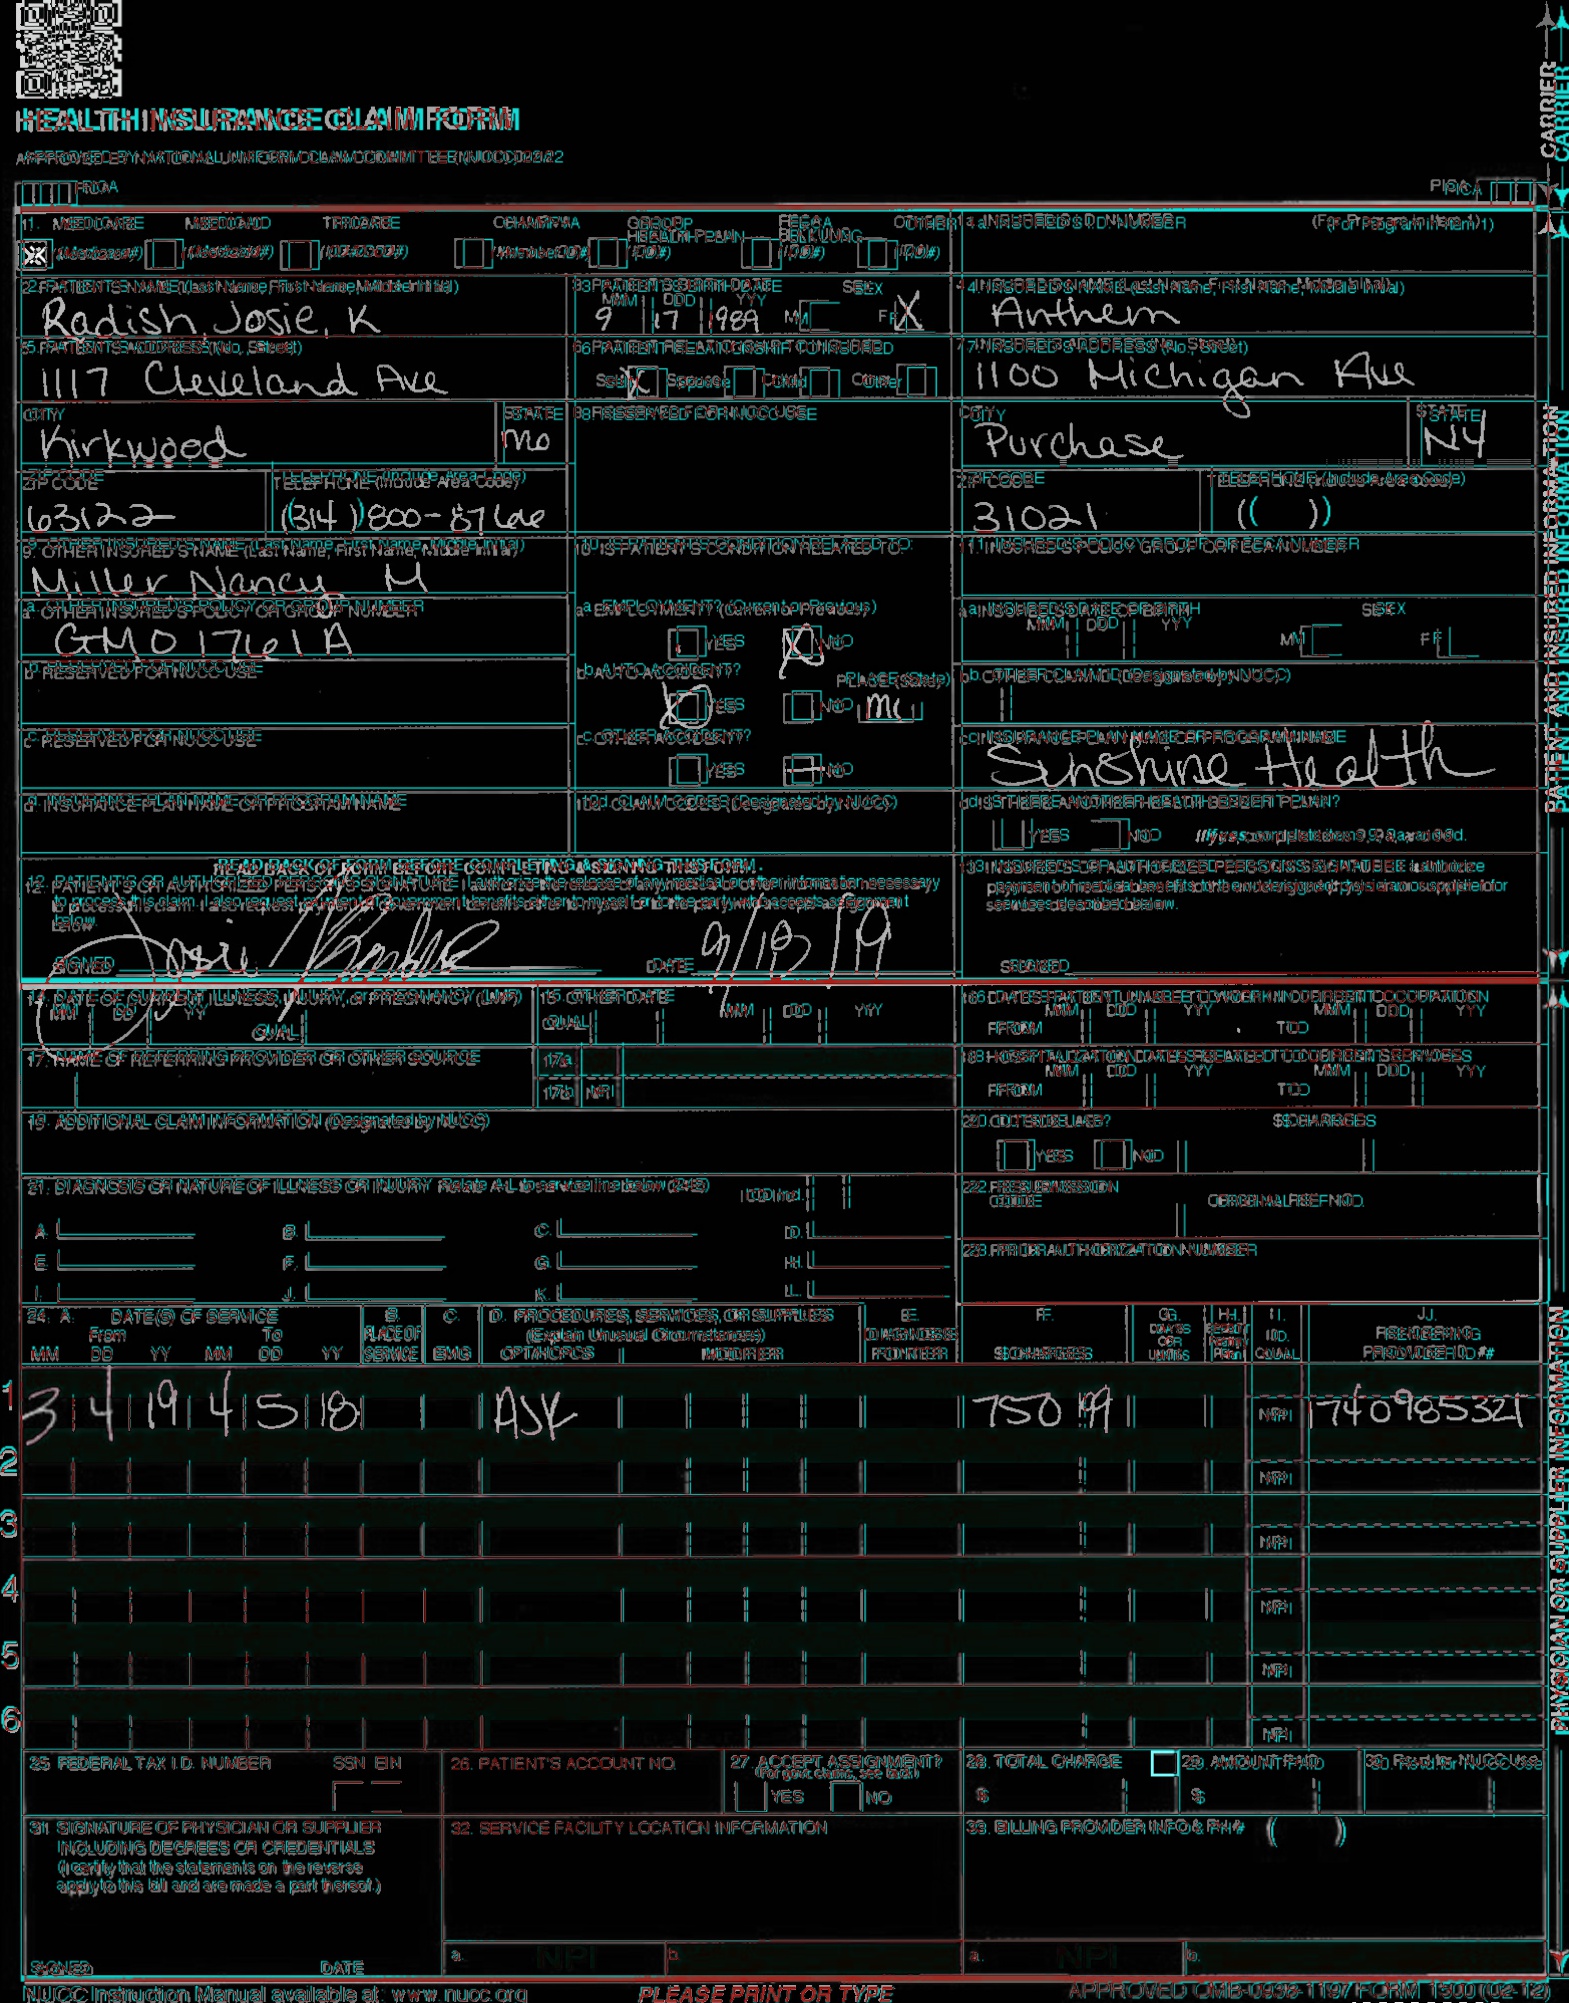 HEALTH INSURANCE CLAIM FORM
APPROVED BY NATIONAL UNIFORM CLAIM COMMITTEE (NUCC) 02/12
PICA
PICA
CARRIER
1. MEDICARE MEDICAID TRICARE CHAMPVA GROUP HEALTH PLAN FECA BLK LUNG OTHER
(Medicare#) (Medicaid#) (ID#/DoD#) (Member ID#) (ID#) (ID#) (ID#)
1a. INSURED'S I.D. NUMBER (For Program in Item 1)
2. PATIENT'S NAME (Last Name, First Name, Middle Initial)
Radish, Josie, K
3. PATIENT'S BIRTH DATE SEX
MM DD YY
9 17 1989 M F X
4. INSURED'S NAME (Last Name, First Name, Middle Initial)
Anthem
5. PATIENT'S ADDRESS (No., Street)
1117 Cleveland Ave
6. PATIENT RELATIONSHIP TO INSURED
Self X Spouse Child Other
7. INSURED'S ADDRESS (No., Street)
1100 Michigan Ave
CITY STATE
Kirkwood Mo
8. RESERVED FOR NUCC USE
CITY STATE
Purchase NY
ZIP CODE TELEPHONE (Include Area Code)
63122 (314) 800-8766
ZIP CODE TELEPHONE (Include Area Code)
31021 ( )
9. OTHER INSURED'S NAME (Last Name, First Name, Middle Initial)
Miller, Nancy, M
10. IS PATIENT'S CONDITION RELATED TO:
11. INSURED'S POLICY GROUP OR FECA NUMBER
a. OTHER INSURED'S POLICY OR GROUP NUMBER
GMO1761A
a. EMPLOYMENT? (Current or Previous)
YES X NO
a. INSURED'S DATE OF BIRTH SEX
MM DD YY M F
b. RESERVED FOR NUCC USE
b. AUTO ACCIDENT? PLACE (State)
X YES NO
b. OTHER CLAIM ID (Designated by NUCC)
c. RESERVED FOR NUCC USE
c. OTHER ACCIDENT?
YES NO
c. INSURANCE PLAN NAME OR PROGRAM NAME
Sunshine Health
d. INSURANCE PLAN NAME OR PROGRAM NAME
10d. CLAIM CODES (Designated by NUCC)
d. IS THERE ANOTHER HEALTH BENEFIT PLAN?
YES NO If yes, complete items 9, 9a, and 9d.
PATIENT AND INSURED INFORMATION
READ BACK OF FORM BEFORE COMPLETING & SIGNING THIS FORM.
12. PATIENT'S OR AUTHORIZED PERSON'S SIGNATURE I authorize the release of any medical or other information necessary
to process this claim. I also request payment of government benefits either to myself or to the party who accepts assignment
below.
SIGNED Josie DATE 9/18/19
13. INSURED'S OR AUTHORIZED PERSON'S SIGNATURE I authorize
payment of medical benefits to the undersigned physician or supplier for
services described below.
SIGNED
14. DATE OF CURRENT ILLNESS, INJURY, or PREGNANCY (LMP)
MM DD YY QUAL.
15. OTHER DATE
QUAL. MM DD YY
16. DATES PATIENT UNABLE TO WORK IN CURRENT OCCUPATION
MM DD YY MM DD YY
FROM TO
17. NAME OF REFERRING PROVIDER OR OTHER SOURCE
17a.
17b. NPI
18. HOSPITALIZATION DATES RELATED TO CURRENT SERVICES
MM DD YY MM DD YY
FROM TO
19. ADDITIONAL CLAIM INFORMATION (Designated by NUCC)
20. OUTSIDE LAB? $ CHARGES
YES NO
21. DIAGNOSIS OR NATURE OF ILLNESS OR INJURY Relate A-L to service line below (24E) ICD Ind.
A. B. C. D.
E. F. G. H.
I. J. K. L.
22. RESUBMISSION
CODE ORIGINAL REF. NO.
23. PRIOR AUTHORIZATION NUMBER
24. A. DATE(S) OF SERVICE B. C. D. PROCEDURES, SERVICES, OR SUPPLIES E. F. G. H. I. J.
From To PLACE OF (Explain Unusual Circumstances) DIAGNOSIS DAYS OR UNITS EPSDT Family Plan ID. RENDERING
MM DD YY MM DD YY SERVICE EMG CPT/HCPCS MODIFIER POINTER $ CHARGES QUAL. PROVIDER ID. #
1 3 4 19 4 5 18 ASK 750 99 NPI 1740985321
2 NPI
3 NPI
4 NPI
5 NPI
6 NPI
PHYSICIAN OR SUPPLIER INFORMATION
25. FEDERAL TAX I.D. NUMBER SSN EIN
26. PATIENT'S ACCOUNT NO.
27. ACCEPT ASSIGNMENT?
(For govt. claims, see back)
YES NO
28. TOTAL CHARGE
$
29. AMOUNT PAID
$
30. Rsvd for NUCC Use
31. SIGNATURE OF PHYSICIAN OR SUPPLIER
INCLUDING DEGREES OR CREDENTIALS
(I certify that the statements on the reverse
apply to this bill and are made a part thereof.)
SIGNED DATE
32. SERVICE FACILITY LOCATION INFORMATION
a. NPI b.
33. BILLING PROVIDER INFO & PH # ( )
a. NPI b.
NUCC Instruction Manual available at: www.nucc.org
PLEASE PRINT OR TYPE
APPROVED OMB-0938-1197 FORM 1500 (02-12)